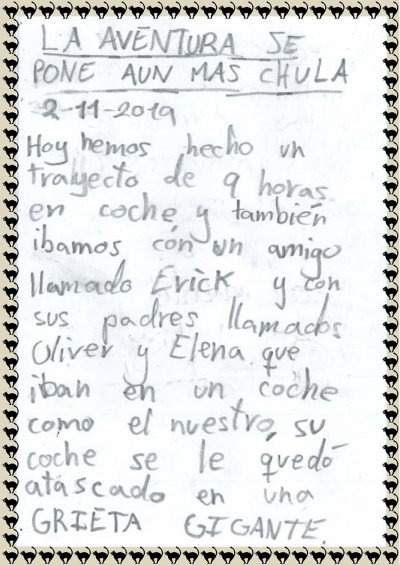 LA AVENTURA SE
PONE AUN MAS CHULA
2-11-2019
Hoy hemos hecho un
trayecto de 9 horas
en coche y también
ibamos con un amigo
llamado Erick y con
sus padres llamados
Oliver y Elena que
iban en un coche
como el nuestro, su
coche se le quedó
atascado en una
GRIETA GIGANTE.